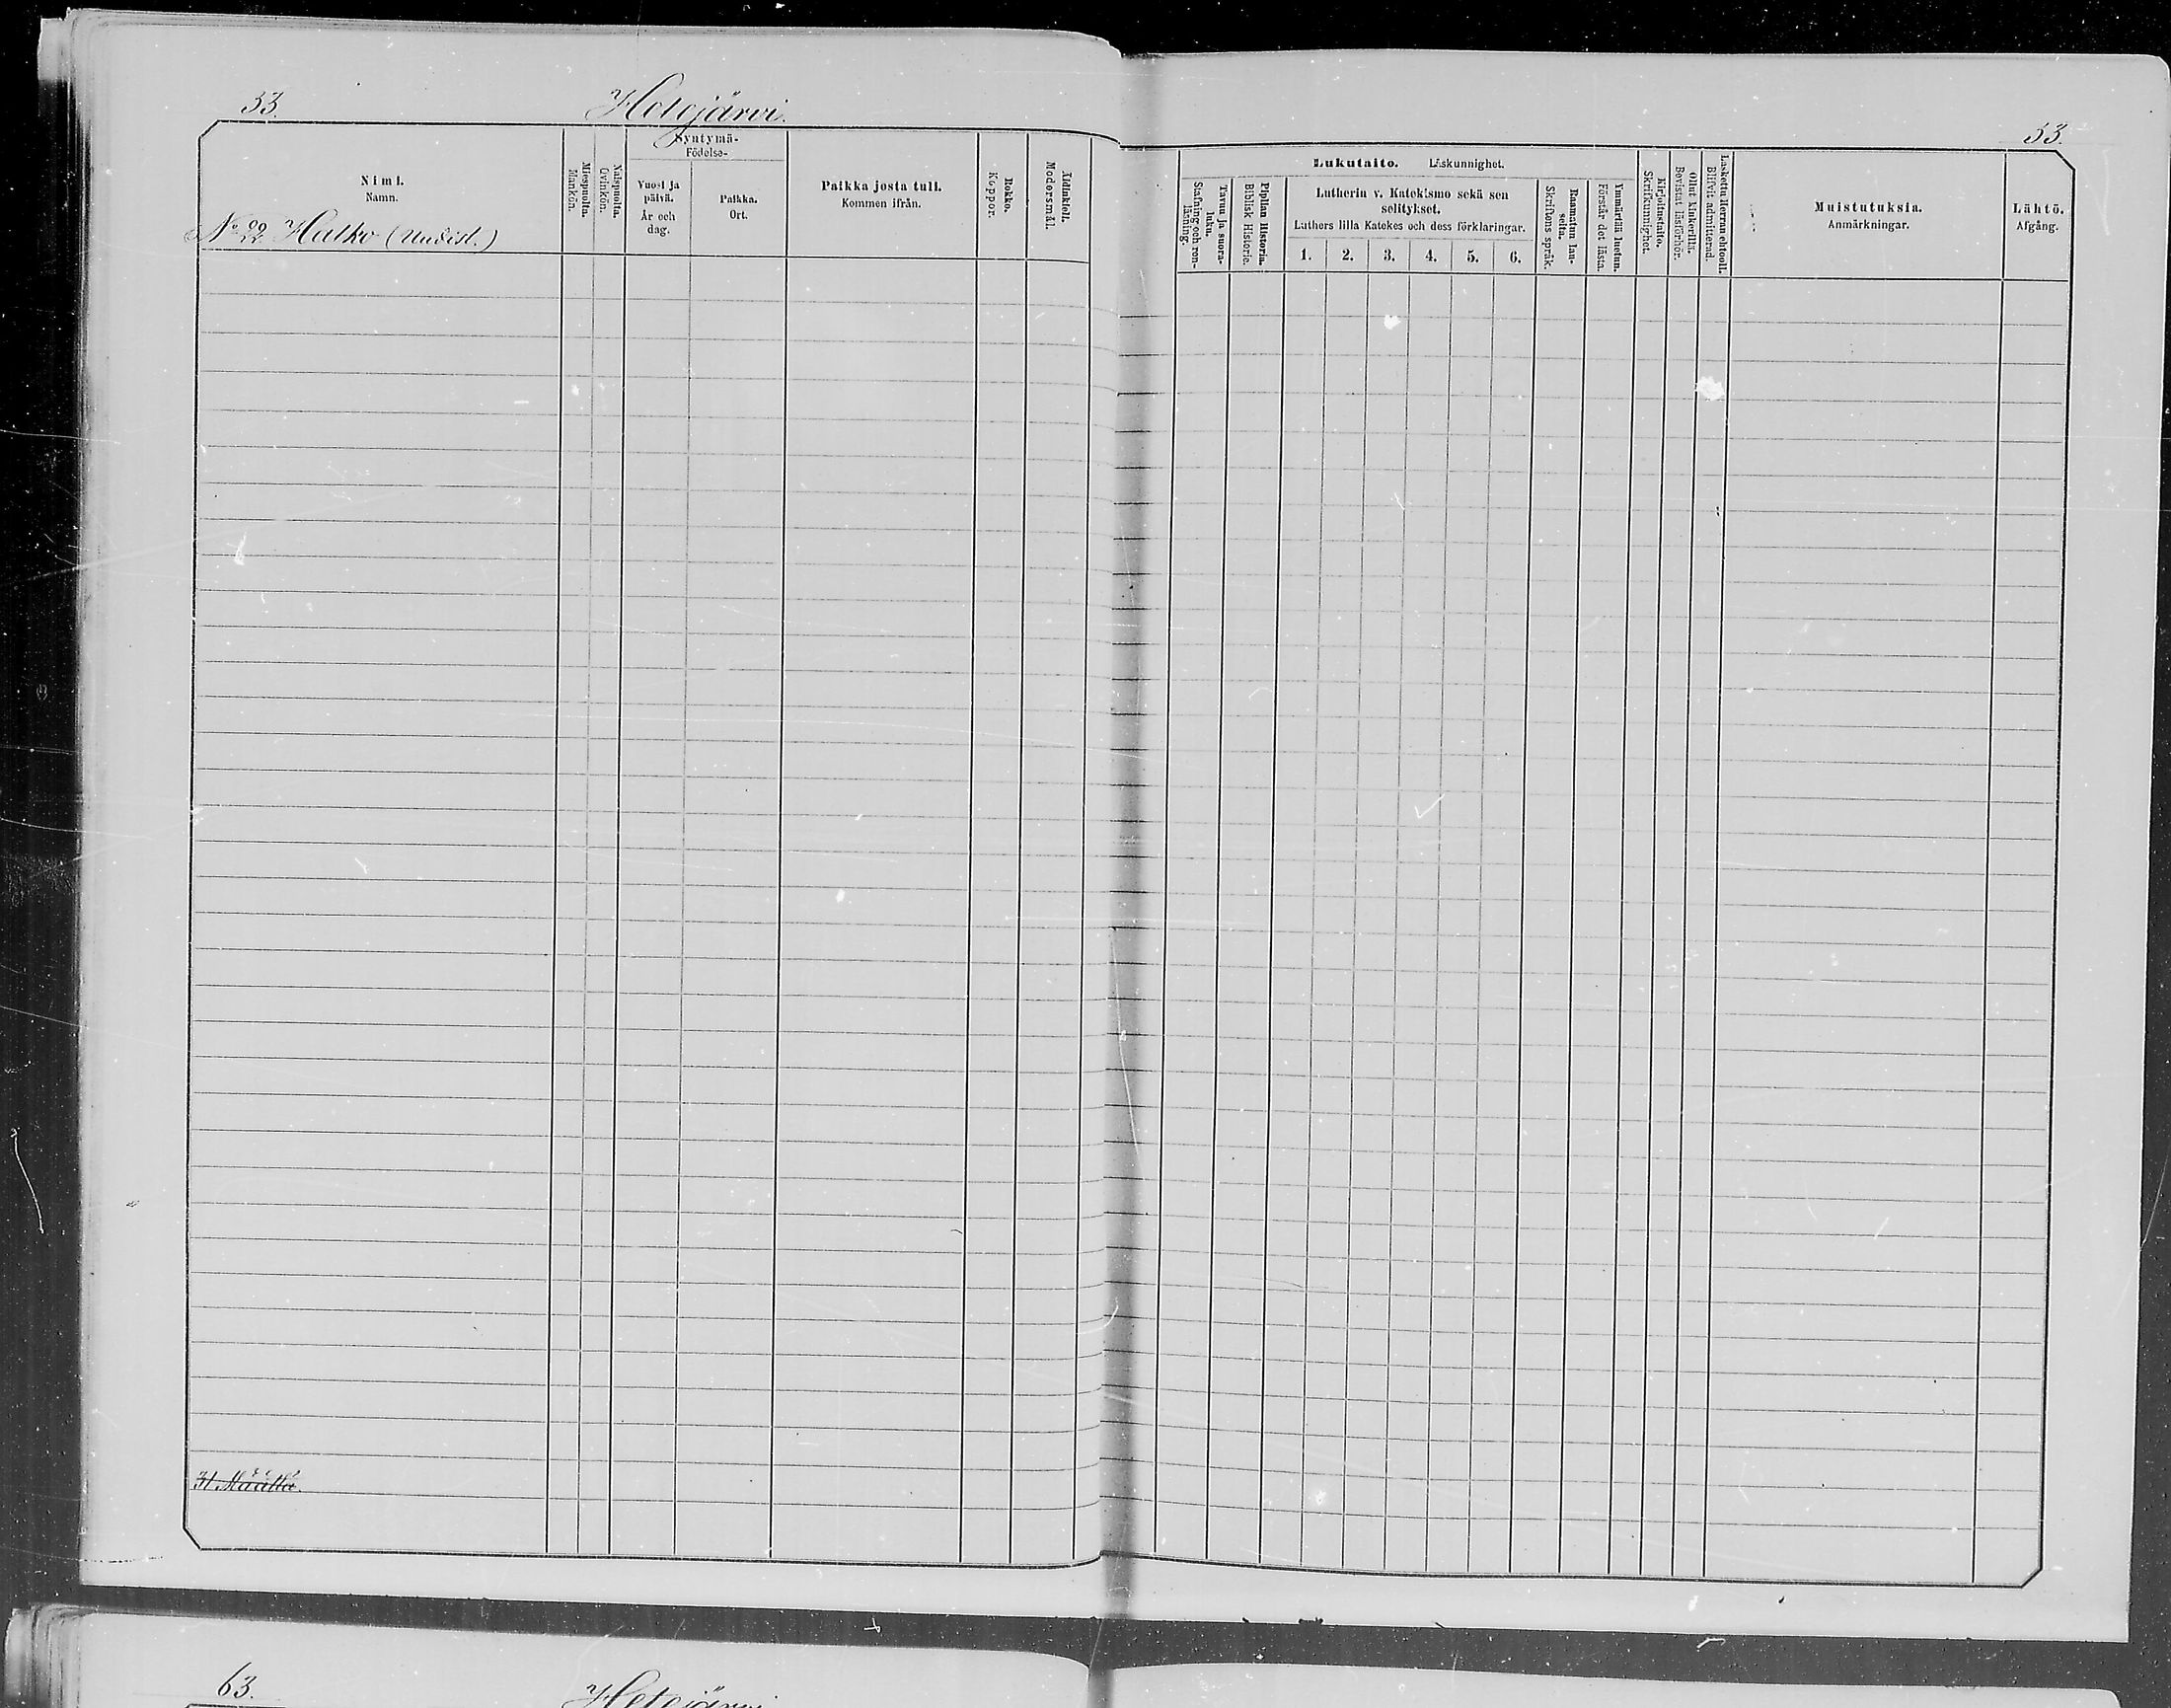 53.
Hetejärvi.
53.
Nimi.
Namn.
Miespuolta.
Mankön.
Naispuolta.
Qvinkön.
Syntymä-
Födelse-
Vuosi ja
päivä.
År och
dag.
Paikka.
Ort.
Paikka josta tuli.
Kommen ifrån.
Rokko.
Koppor.
Äidinkieli.
Modersmål.
No 22 Halko (Uudist.)
Lukutaito. Läskunnighet.
Tavuu ja suora-
luku.
Stafning och ren-
läsning.
Piplian Historia.
Biblisk Historie.
Lutherin v. Katekismo sekä sen
selitykset.
Luthers lilla Katekes och dess förklaringar.
1. 2. 3. 4. 5. 6.
Raamatun lau-
seita.
Skriftens språk.
Ymmärtää luetun.
Förstår det lästa.
Kirjoitustaito.
Skrifkunnighet.
Ollut kinkerillä.
Bevistat läsförhör.
Laskettu Herran ehtooll.
Blifvit admitterad.
Muistutuksia.
Anmärkningar.
Lähtö.
Afgång.
31 Määttä
63.
Hetejärvi